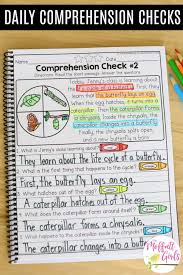 DAILY COMPREHENSION CHECKS
Comprehension Check #2
Directions: Read the short passage. Answer the questions.
Jenny's class is learning about
the life cycle of a butterfly.
First, the butterfly lays an egg.
When the egg hatches, it turns into a
caterpillar. Then the caterpillar
forms a chrysalis. Inside the chrysalis,
the caterpillar changes into a butterfly.
Finally, the chrysalis splits open,
and a new butterfly is born!
What is Jenny's class learning about?
They learn about the life cycle of a butterfly.
What is the first thing that happens in the cycle?
First, the butterfly lays an egg.
A caterpillar hatches out of the egg.
What does the caterpillar form around itself?
The caterpillar forms a chrysalis.
The caterpillar changes into a butterfly
Moffatt
Girls